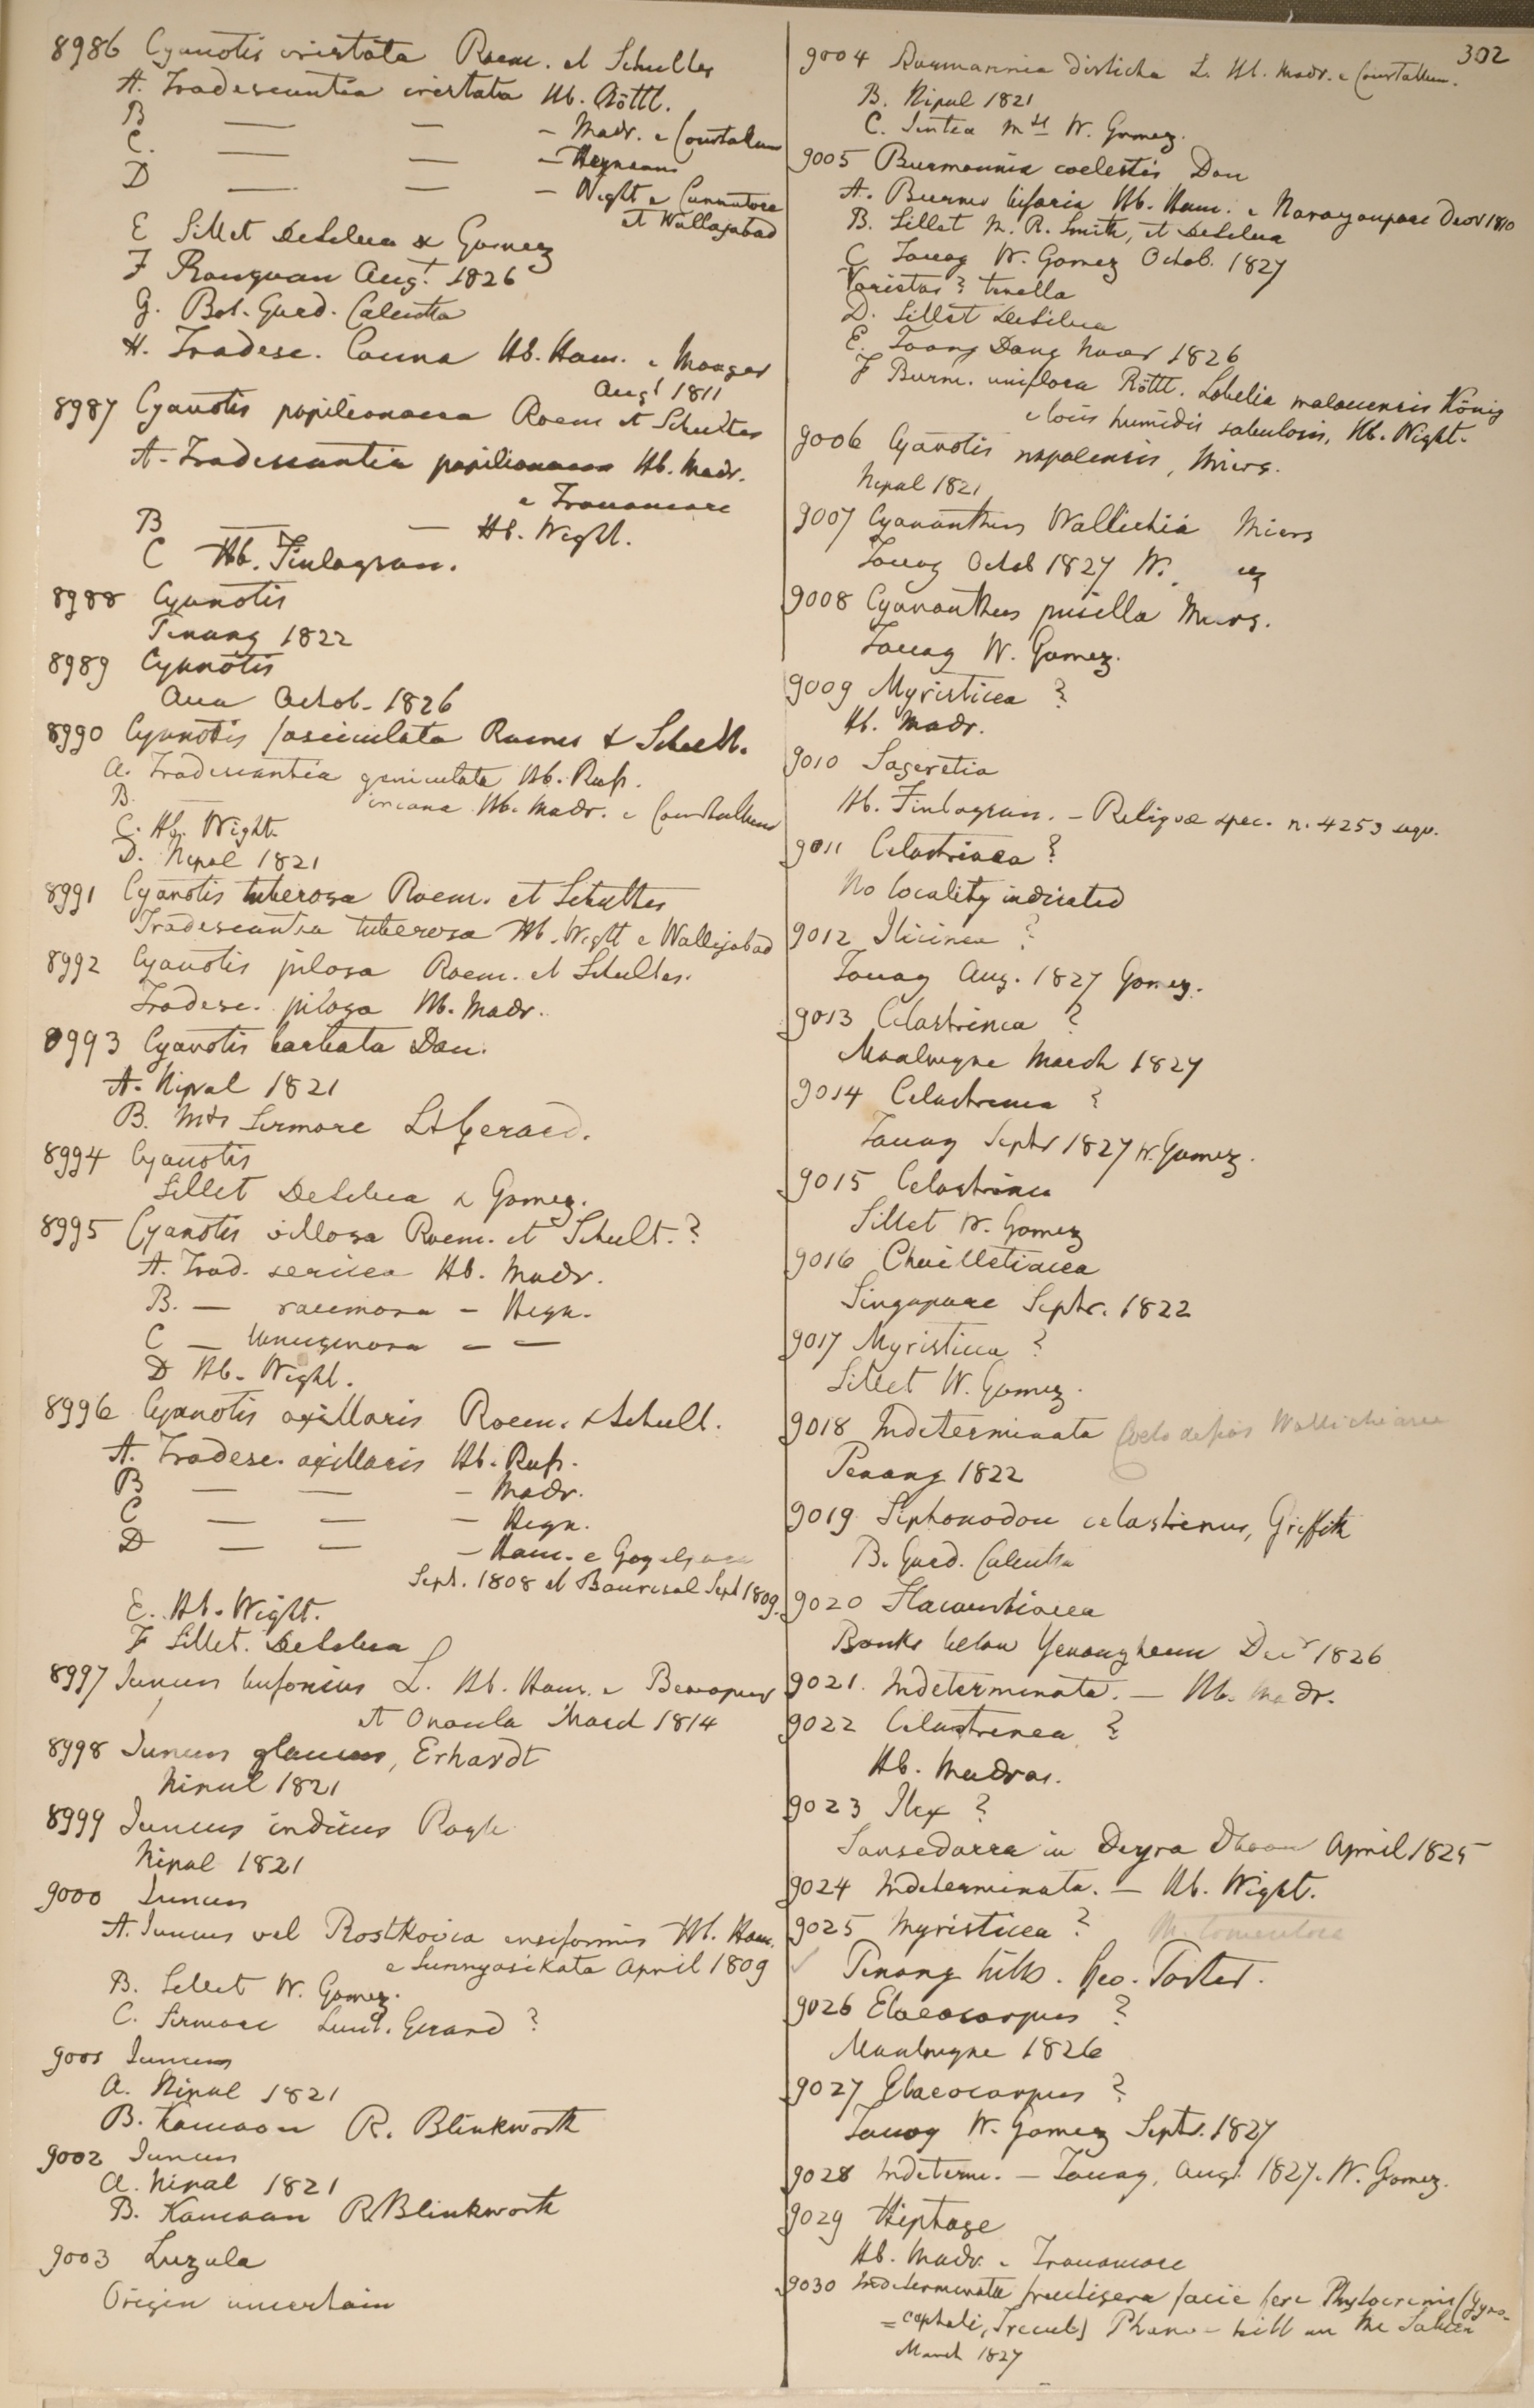 302
8986 Cyanotis cristata Roem. et Schultes
A. Tradescantia cristata Hb. Röttl.
B — — — Madr. e Courtallum
C. — — — Heyneana
D — — — Wight e
et Wallajabad
E Sillet DeSilva & Gomez
F Rangoon Augt. 1826
G. Bot. Gard. Calcutta
H. Tradesc. Hb. Ham. e
Augt 1811
8987 Cyanotis papilionacea Roem et Schultes
A. Tradescantia papilionacea Hb. Madr.
e Travancore
B — — Hb. Wight.
C Hb. Finlayson.
8988 Cyanotis
Penang 1822
8989 Cyanotis
Ava Octob. 1826
8990 Cyanotis fasciculata Roemer & Schult.
a. Tradescantia geniculata Hb. Rufs.
B. — incana Hb. Madr. e Courtallum
C. Hb. Wight.
D. Nepal 1821
8991 Cyanotis tuberosa Roem. et Schultes
Tradescantia tuberosa Hb. Wight e Wallijabad
8992 Cyanotis pilosa Roem. et Schultes.
Tradesc. pilosa Hb. Madr.
8993 Cyanotis barbata Don.
A. Nipal 1821
B. Mts Sirmore Lt Gerard.
8994 Cyanotis
Sillet DeSilva & Gomez.
8995 Cyanotis villosa Roem. et Schult.?
A. Trad. sericea Hb. Madr.
B. — racemosa — Heyn.
C — lanuginosa — —
D Hb. Wight.
8996 Cyanotis axillaris Roem. & Schult.
A. Tradesc. axillaris Hb. Rufs.
B — — — Madr.
C — — — Heyn.
D — — — Ham. e
Sept. 1808 et Sept 1809.
E. Hb. Wight.
F Sillet. DeSilva
8997 Juncus bufonius L. Hb. Ham. e
et March 1814
8998 Juncus glaucus, Erhardt
Nipul 1821
8999 Juncus indicus Royle
Nipal 1821
9000 Juncus
A. Juncus vel Rostkovia ensiformis Hb. Ham.
e Sunnyasikata April 1809
B. Sillet W. Gomez.
C. Sirmore Lieut. Gerard ?
9001 Juncus
A. Nipul 1821
B. Kamaon R. Blinkworth
9002 Juncus
A. Nipal 1821
B. Kamaon R. Blinkworth
9003 Luzula
Origin uncertain
9004 Burmannia disticha L. Hb. Madr. e Courtallum.
B. Nipul 1821
C. Mts W. Gomez.
9005 Burmannia coelestis Don
A. Burm. bifaria Hb. Ham. e 1810
B. Sillet M. R. Smith, et DeSilva
C Tavoy W. Gomez Octob. 1827
Varietas? tenella
D. Sillet DeSilva
E. Toong Dong Novr 1826
F Burm. uniflora Röttl. Lobelia malaccensis König
e locis humidis sabulosis, Hb. Wight.
9006 Cyanotis nepalensis, Miers.
Nepal 1821
9007 Cyananthus Wallichia Miers
Tavoy Octob 1827 W. ez
9008 Cyananthus pusilla Miers.
Tavoy W. Gomez.
9009 Myristicea ?
Hb. Madr.
9010 Sageretia
Hb. Finlayson. — Reliquae spec. n. 4253 sequ.
9011 Celastrinea ?
No locality indicated
9012 Ilicinea ?
Tavoy Aug. 1827 Gomez.
9013 Celastrinea ?
Moalmyne March 1827
9014 Celastrinea ?
Tavoy Septr 1827 W. Gomez.
9015 Celastrinea
Sillet W. Gomez
9016 Chailletiacea
Singapore Septr. 1822
9017 Myristicea ?
Sillet W. Gomez.
9018 Indeterminata Coelodepas Wallichianum
Penang 1822
9019 Siphonodon celastrinus, Griffith
B. Gard. Calcutta
9020 Flacourtiacea
Banks below Yenangheum Decr 1826
9021. Indeterminata. — Hb. Madr.
9022 Celastrinea ?
Hb. Madras.
9023 Ilex ?
Sansedarra in Deyra Dhoon April 1825
9024 Indeterminata. — Hb. Wight.
9025 Myristicea ? M. tomentosa
Penang hills. Geo. Porter.
9026 Elaeocarpus ?
Moalmyne 1826
9027 Elaeocarpus ?
Tavoy W. Gomez Septr. 1827
9028 Indeterm. — Tavoy, Augt. 1827. W. Gomez.
9029 Hiptage
Hb. Madr. e Travancore
9030 Indeterminata fructigera facie fere Phytocrenis (Gyno-
= cephali, Trecul) hill on the Saluen
March 1827